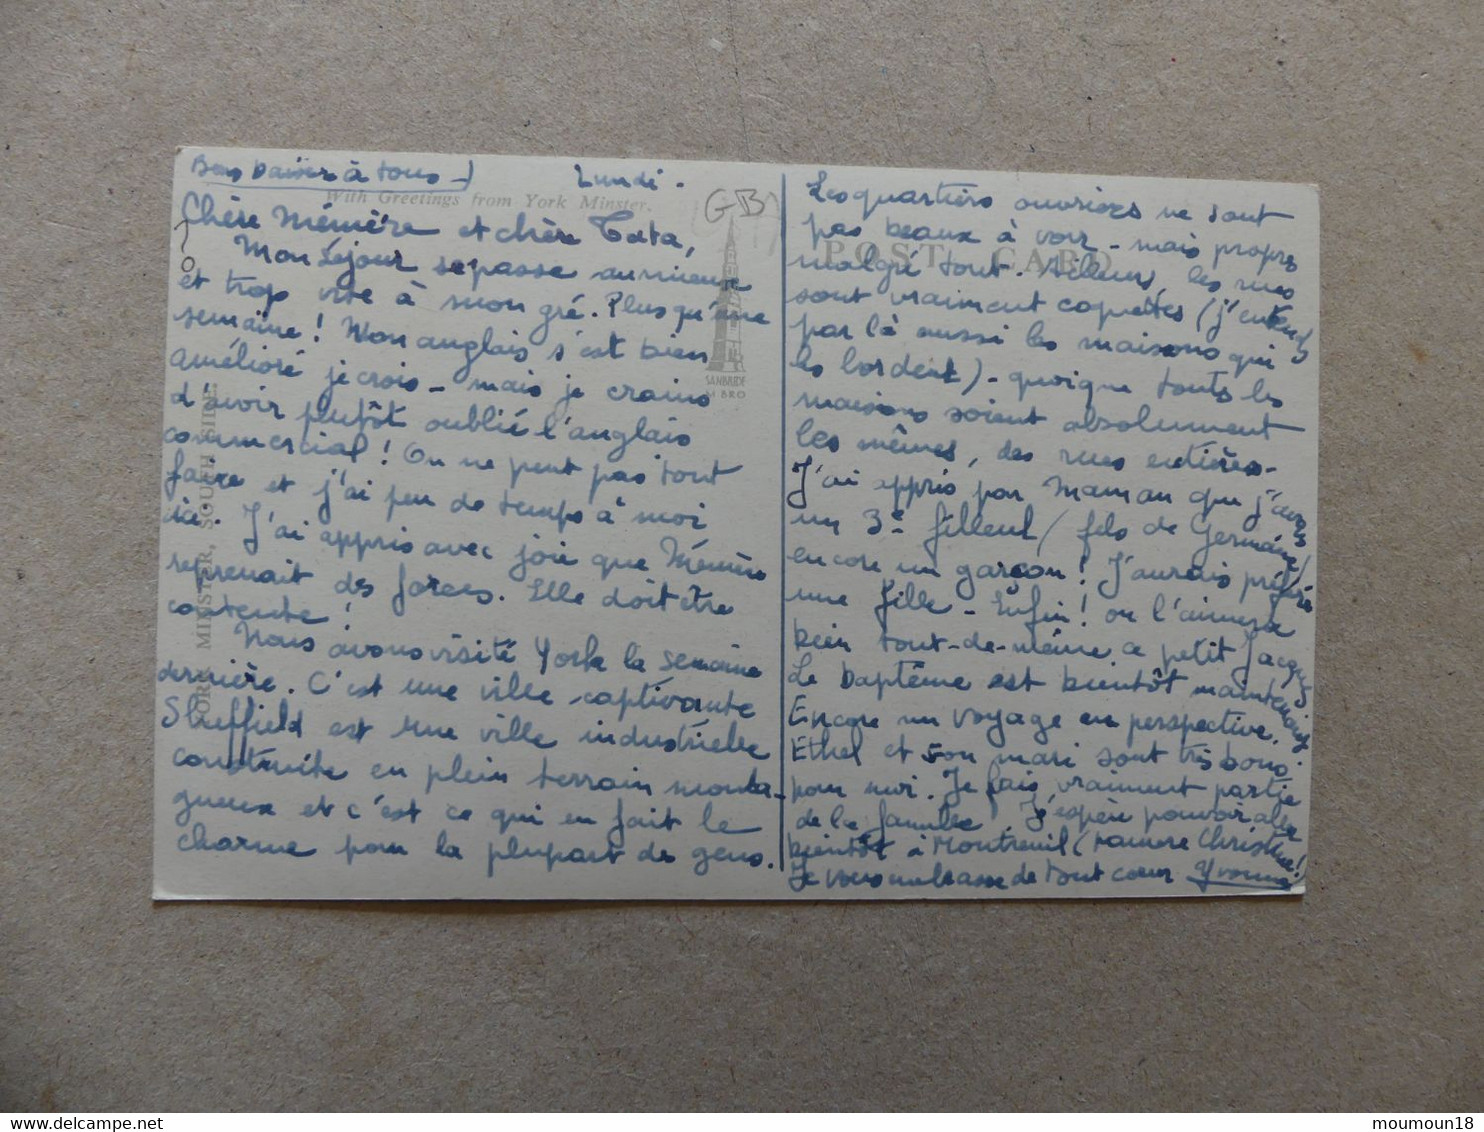 Bons baisers à tous -
Lundi.
With Greetings from York Minster.
GB
Chère Mémère et chère Tata,
Mon séjour se passe au mieux
et trop vite à mon gré. Plus qu'une
semaine ! Mon anglais s'est bien
amélioré je crois - mais je crains
d'avoir plutôt oublié l'anglais
commercial ! On ne peut pas tout
faire et j'ai peu de temps à moi
ici. J'ai appris avec joie que Mémère
reprenait des forces. Elle doit être
contente !
Nous avons visité York la semaine
dernière. C'est une ville captivante
Sheffield est une ville industrielle
construite en plein terrain monta-
gneux et c'est ce qui en fait le
charme pour la plupart des gens.
YORK MINSTER, SOUTH SIDE.
POST CARD
SANBRIDE
Les quartiers ouvriers ne sont
pas beaux à voir - mais propres
malgré tout. Ailleurs, les rues
sont vraiment coquettes (j'entends
par là aussi les maisons qui
les bordent) - quoique toutes les
maisons soient absolument
les mêmes, des rues entières -
J'ai appris par Maman que j'avais
un 3e filleul (fils de Germaine)
encore un garçon ! J'aurais préféré
une fille - Enfin ! on l'aimera
bien tout-de-même ce petit Jacques
Le baptême est bientôt maintenant
Encore un voyage en perspective.
Ethel et son mari sont très bons
pour moi. Je fais vraiment partie
de la famille J'espère pouvoir aller
bientôt à Montreuil ( Christine !
Je vous embrasse de tout coeur Yvonne
moumoun18